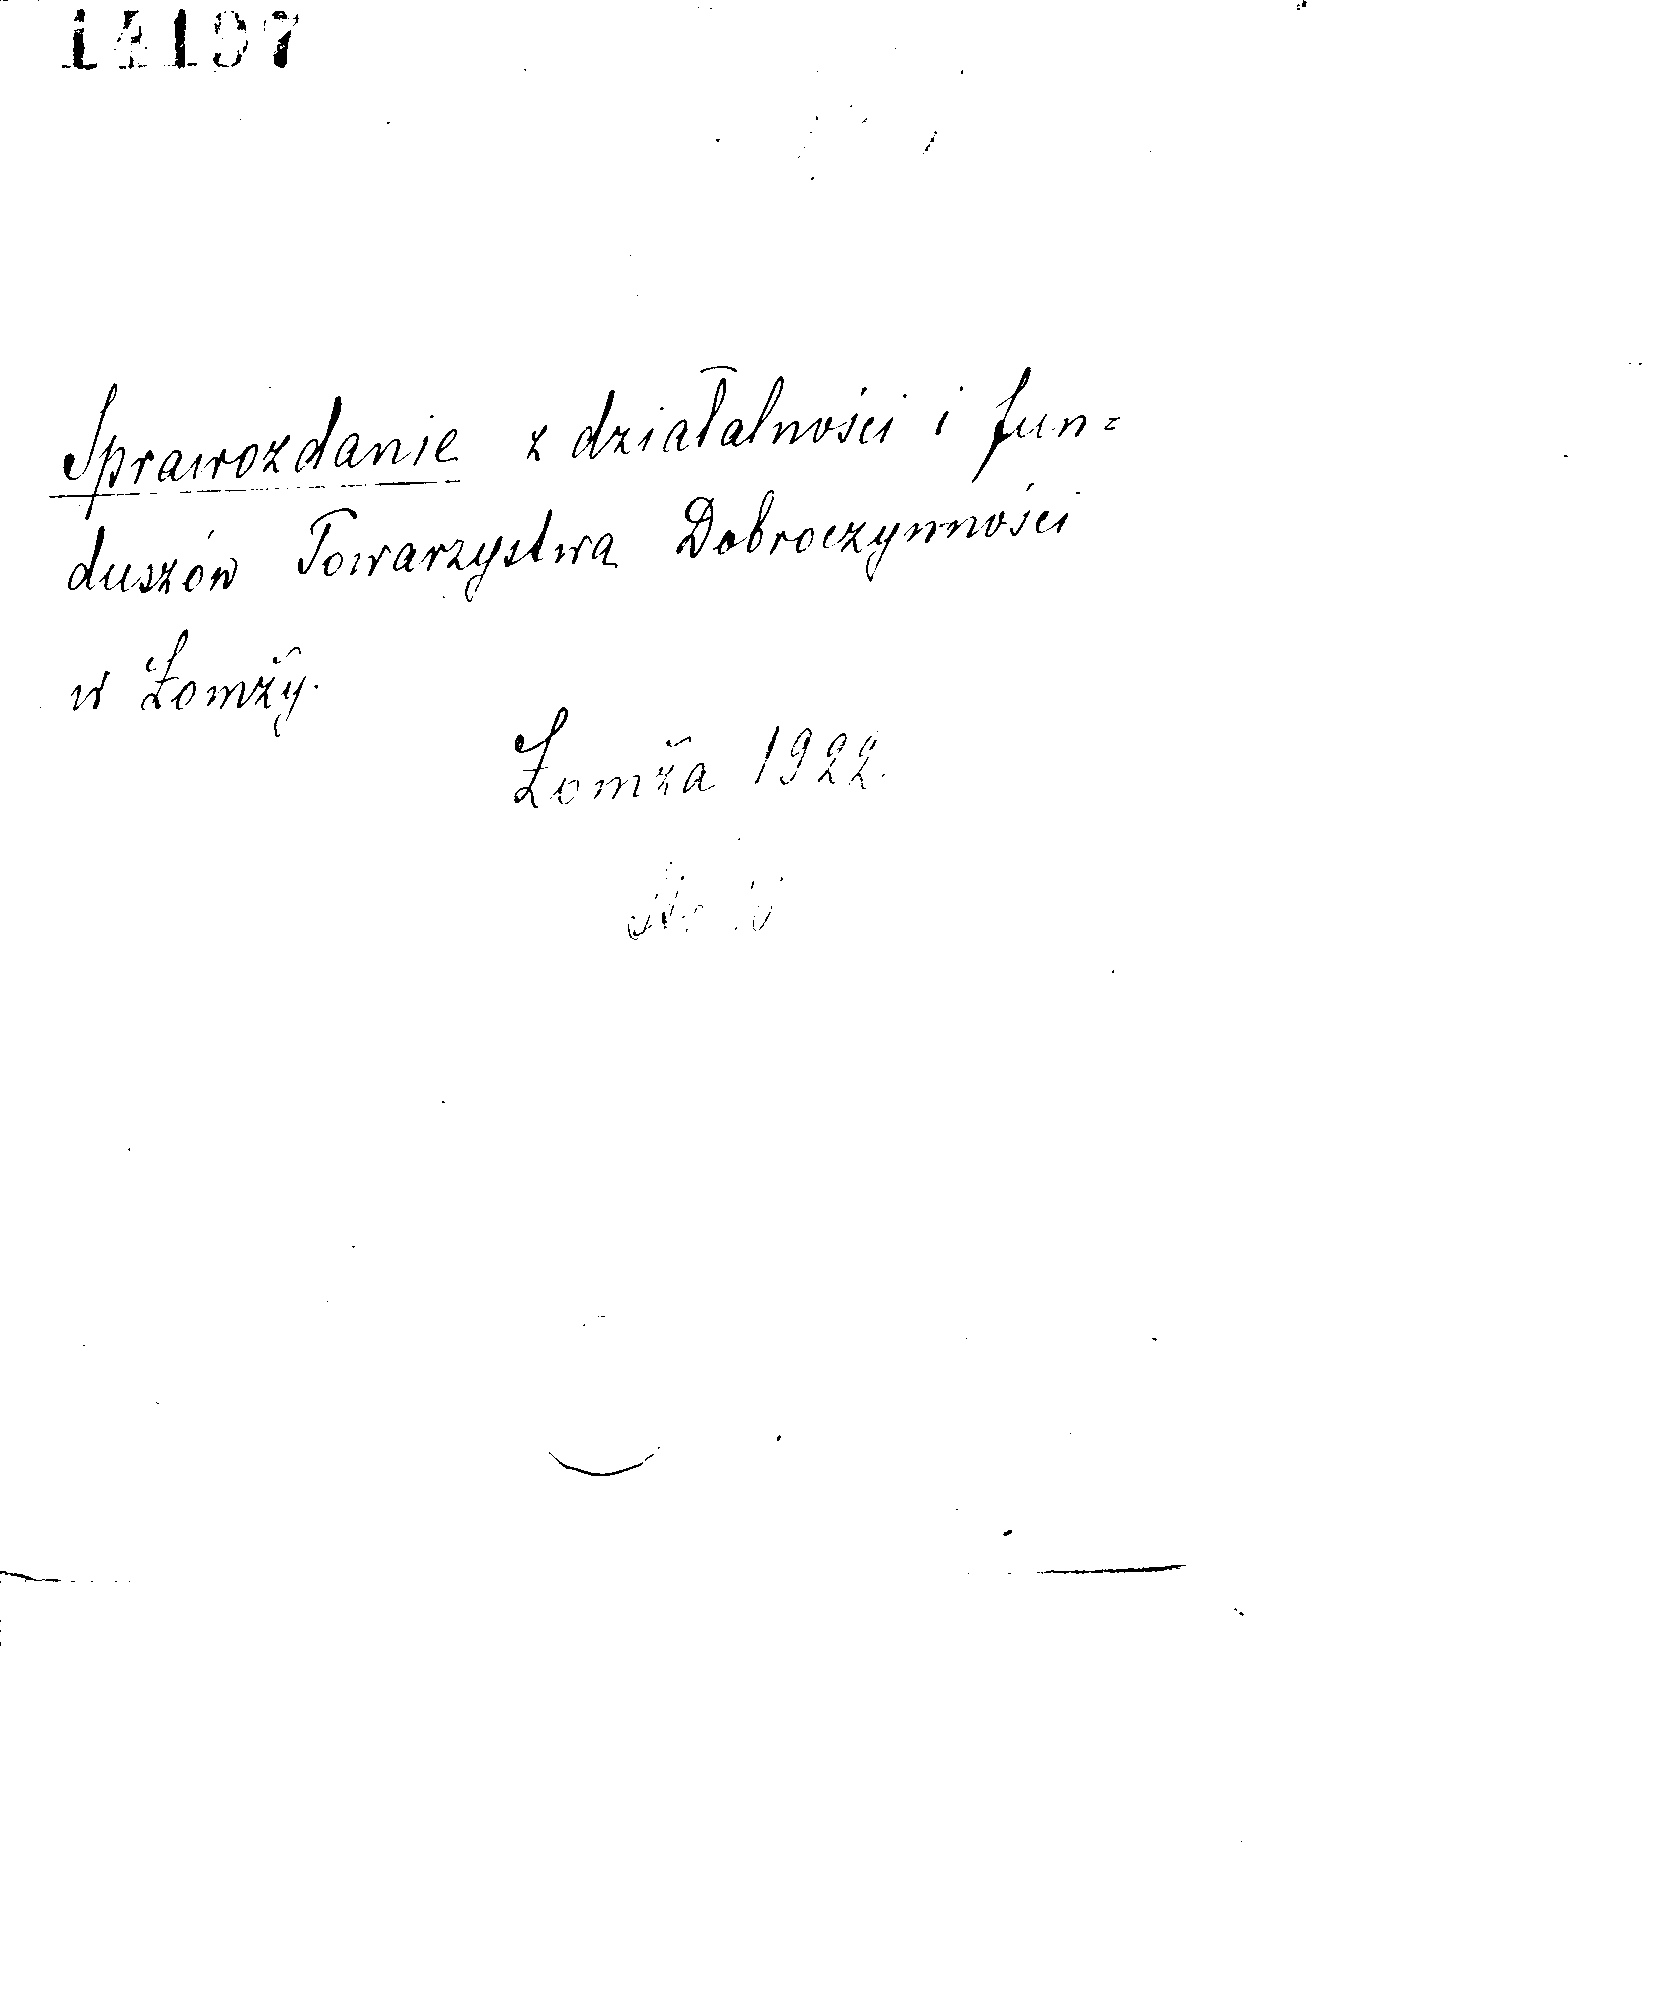 14197
Sprawozdanie z działalności i fun=
duszów Towarzystwa Dobroczynności
w Łomży.
Łomża 1922.